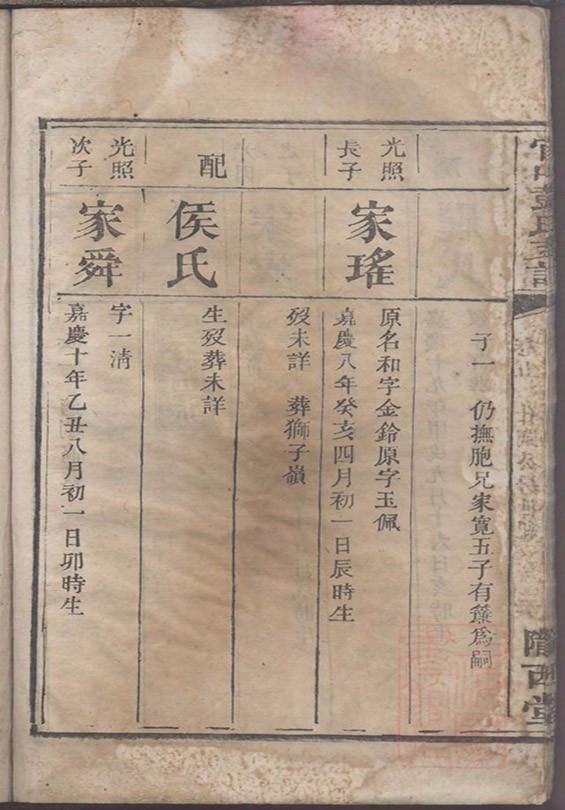 彭氏支譜
隴西堂
子一　仍撫胞兄家寬五子有簾為嗣
光照
長子
家瑤
原名和字金鈴原字玉佩
嘉慶八年癸亥四月初一日辰時生
歿未詳　葬獅子嶺
配
侯氏
生歿葬未詳
光照
次子
家舜
字一清
嘉慶十年乙丑八月初一日卯時生